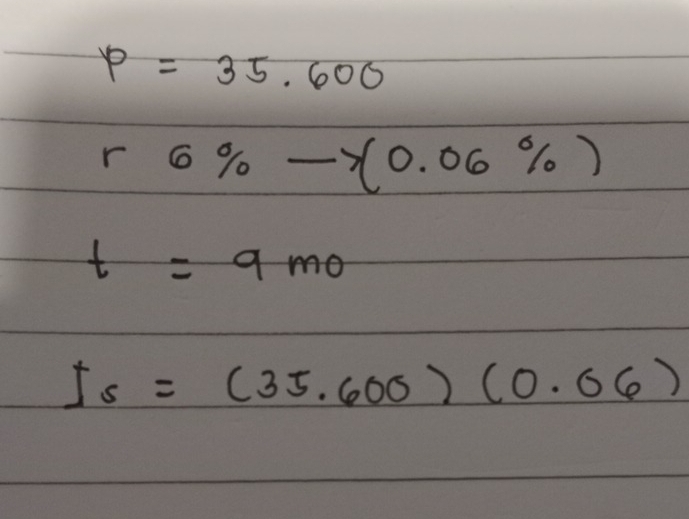 P = 35.600
r 6 % → (0.06 %)
t = 9 mo
Is = (35.600) (0.06)